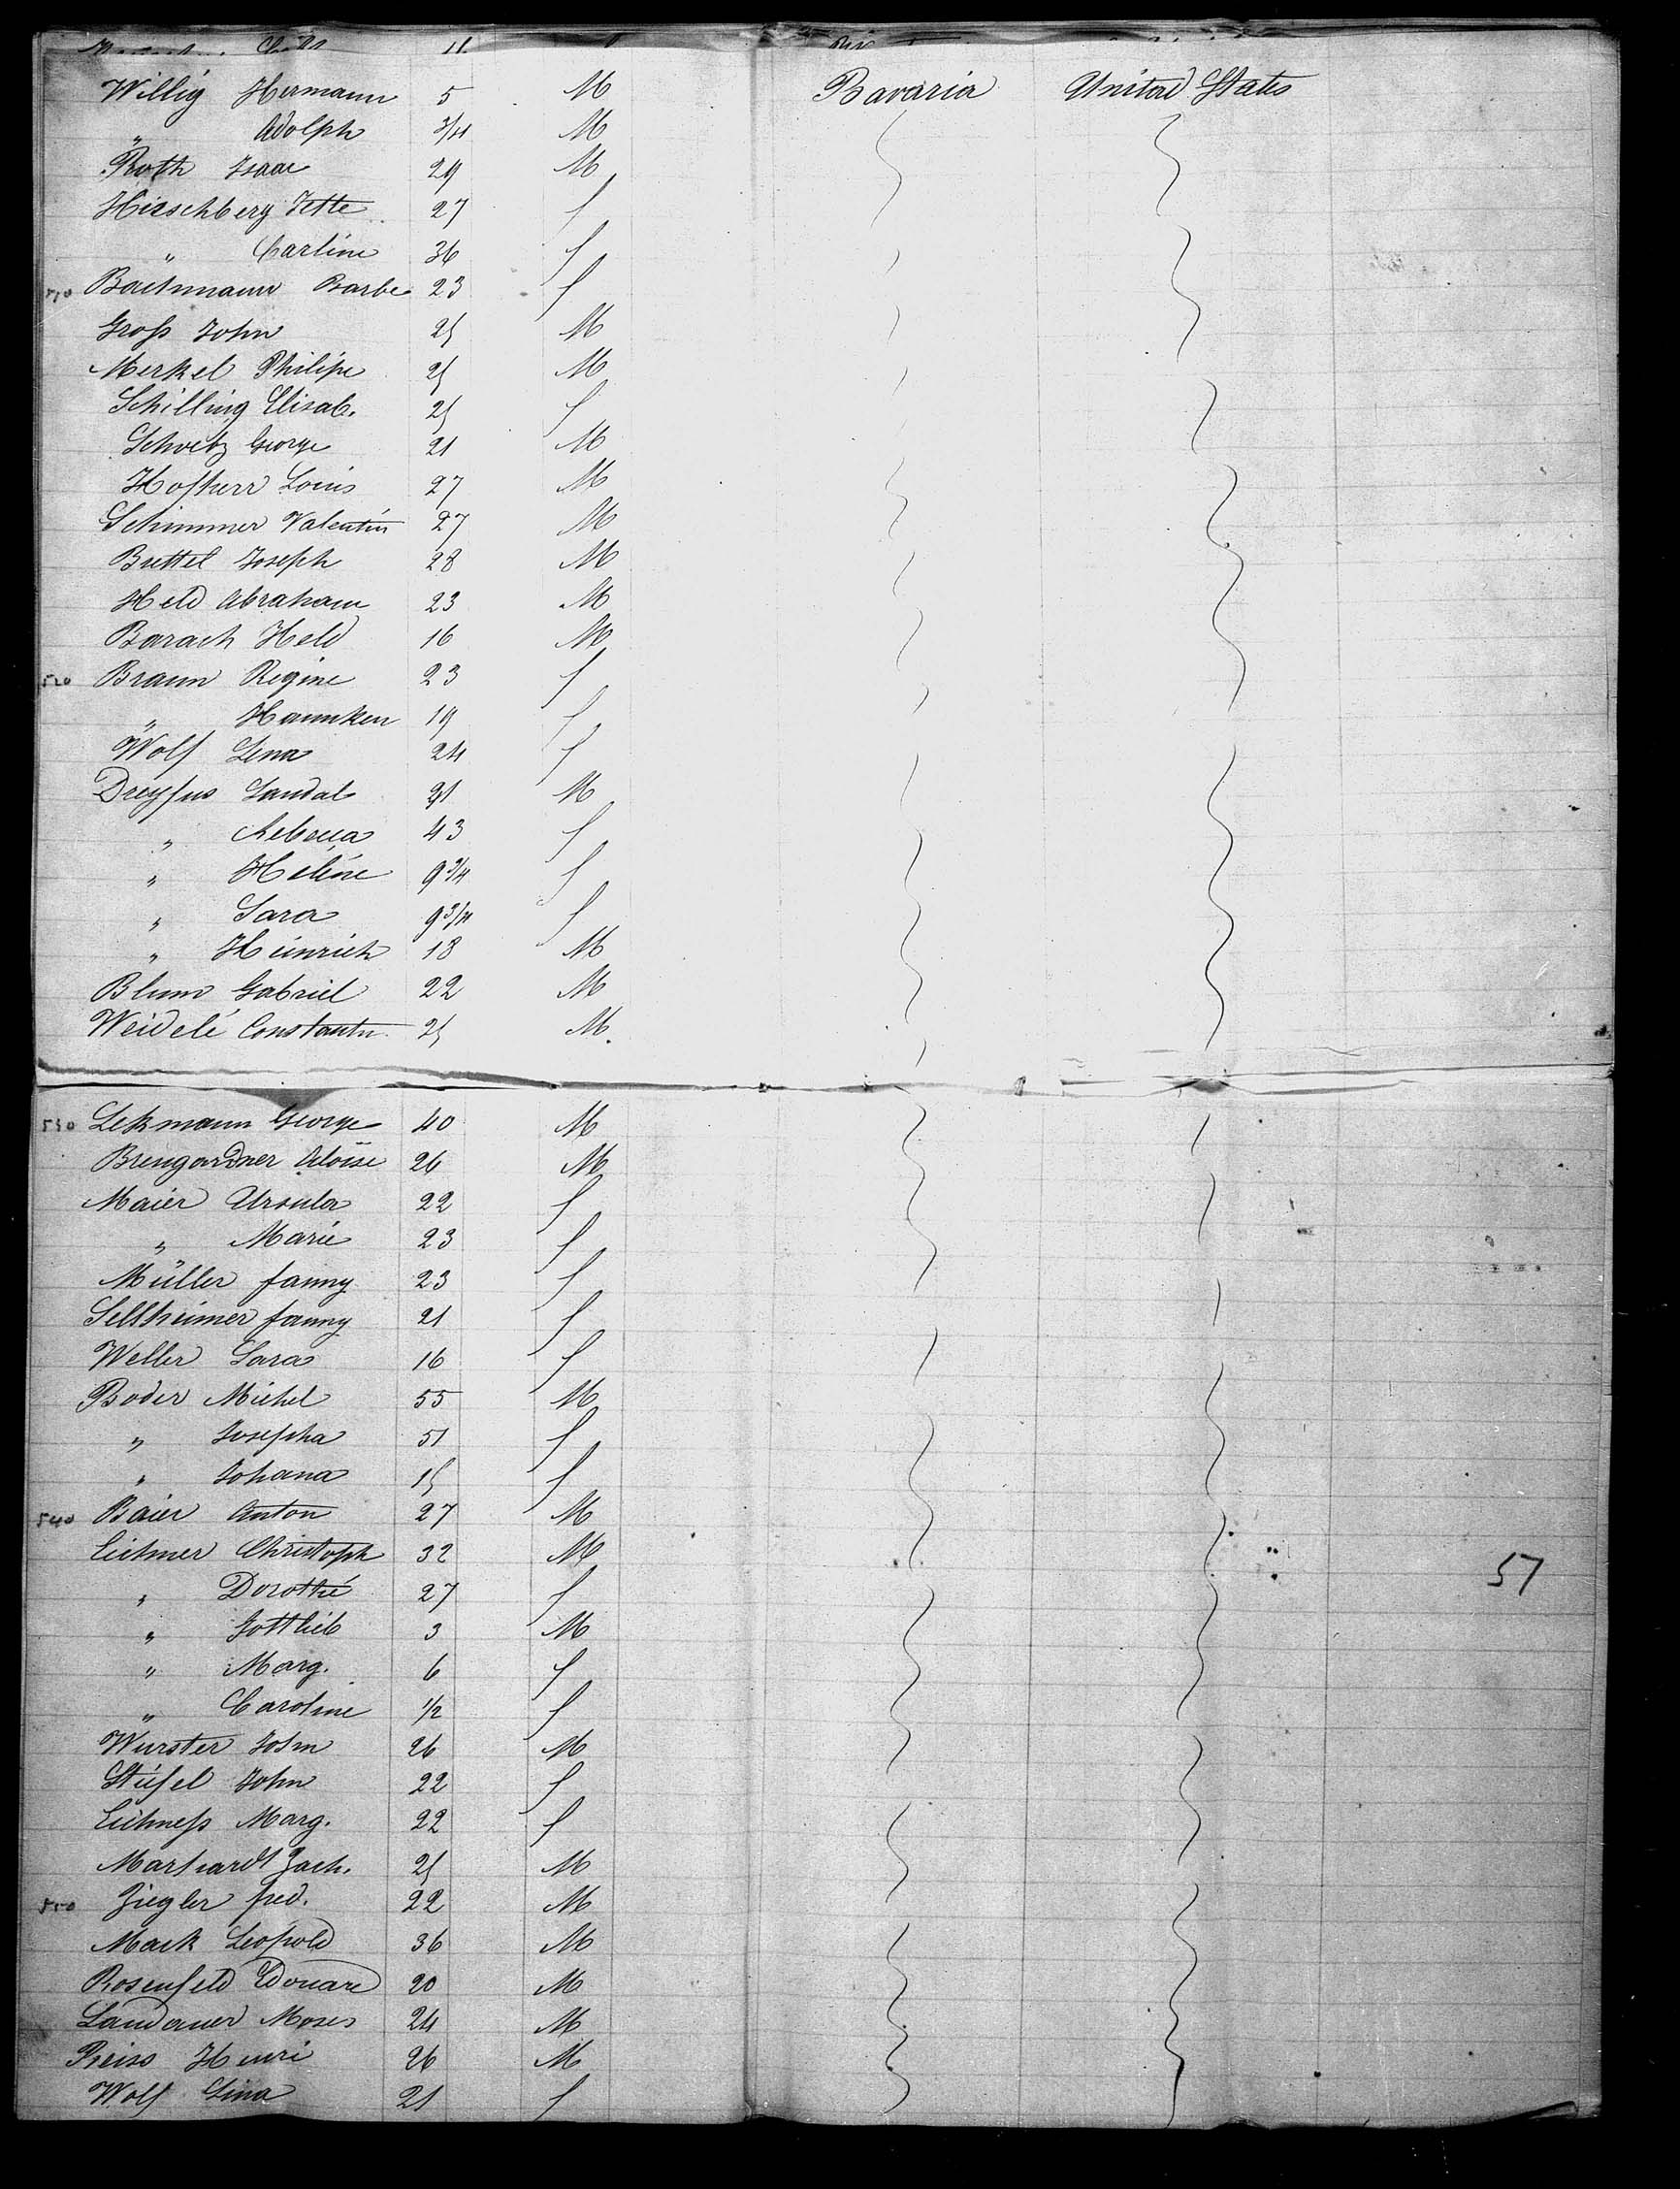 Willig Hermann 5 M Bavaria United States
" Adolph 3/4 M
Roth Isaac 29 M
Hirschberg Jette 27 f
" Carline 36 f
510 Bachmann Barbe 23 f
Groß John 25 M
Merkel Philipe 25 M
Schilling Elisab. 25 f
Schoetz George 21 M
Hofherr Louis 27 M
Schimmer Valentin 27 M
Buttel Joseph 28 M
Held Abraham 23 M
Barach Held 16 M
520 Braun Regine 23 f
" Hannken 19 f
Wolf Lena 24 f
Dreyfus Sandal 21 M
" Rebecca 43 f
" Heléne 9 3/4 f
" Sara 9 3/4 f
" Heinrich 18 M
Blum Gabriel 22 M
Weidelé Constantin 25 M.
530 Lekmann George 40 M
Brengardner Aloise 26 M
Maier Ursula 22 f
" Marie 23 f
Müller fanny 23 f
Sellheimer fanny 21 f
Weller Sara 16 f
Boder Michel 55 M
" Josepha 51 f
" Johana 15 f
540 Baier Anton 27 M
Eichner Christoph 32 M
" Dorothé 27 f
" Gottlieb 3 M
" Marg. 6 f
" Caroline 1/2 f
57
Wurster John 26 M
Stiefel John 22 f
Eichneß Marg. 22 f
Marhardt Zach. 25 M
550 Ziegler fred. 22 M
Mack Leopold 36 M
Rosenfeld Edouard 20 M
Landauer Moses 24 M
Reiss Henri 26 M
Wolf Lina 21 f